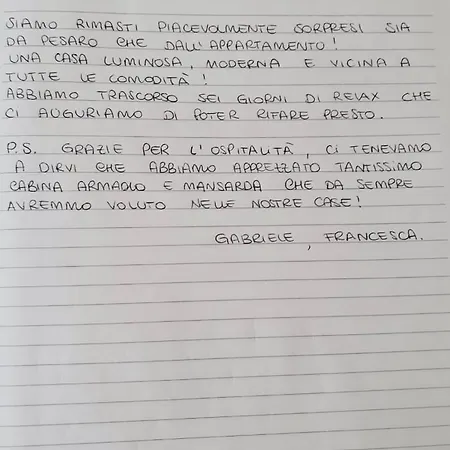 SIAMO RIMASTI PIACEVOLMENTE SORPRESI SIA
DA PESARO CHE DALL'APPARTAMENTO!
UNA CASA LUMINOSA, MODERNA E VICINA A
TUTTE LE COMODITÀ!
ABBIAMO TRASCORSO SEI GIORNI DI RELAX CHE
CI AUGURIAMO DI POTER RIFARE PRESTO.
P.S. GRAZIE PER L'OSPITALITÀ, CI TENEVAMO
A DIRVI CHE ABBIAMO APPREZZATO TANTISSIMO
CABINA ARMADIO E MANSARDA CHE DA SEMPRE
AVREMMO VOLUTO NELLE NOSTRE CASE!
GABRIELE, FRANCESCA.